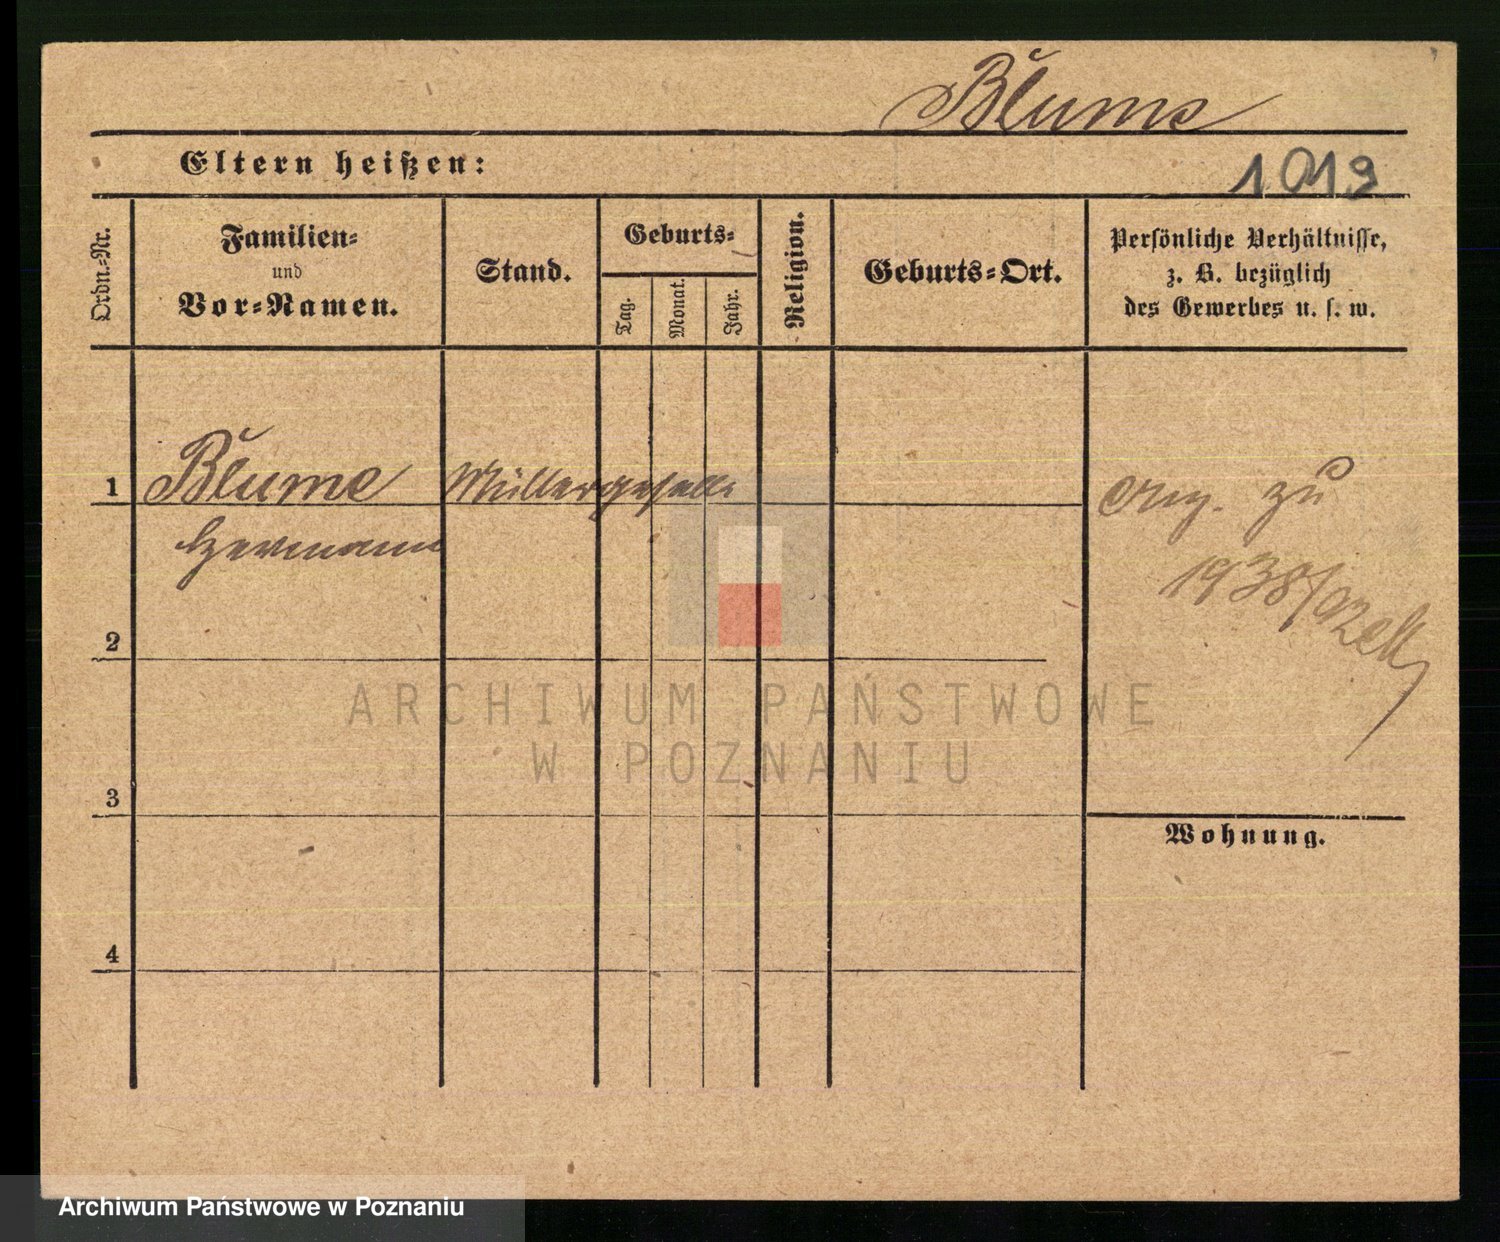 Blume
Eltern heißen:
1019
Ordn.-Nr.
Familien-
und
Vor-Namen.
Stand.
Geburts-
Tag.
Monat.
Jahr.
Religion.
Geburts-Ort.
Persönliche Verhältnisse,
z. B. bezüglich
des Gewerbes u. s. w.
1
Blume
Müllergeselle
zu
Hermann
1938/92
2
ARCHIWUM PAŃSTWOWE
W POZNANIU
3
Wohnung.
4
Archiwum Państwowe w Poznaniu